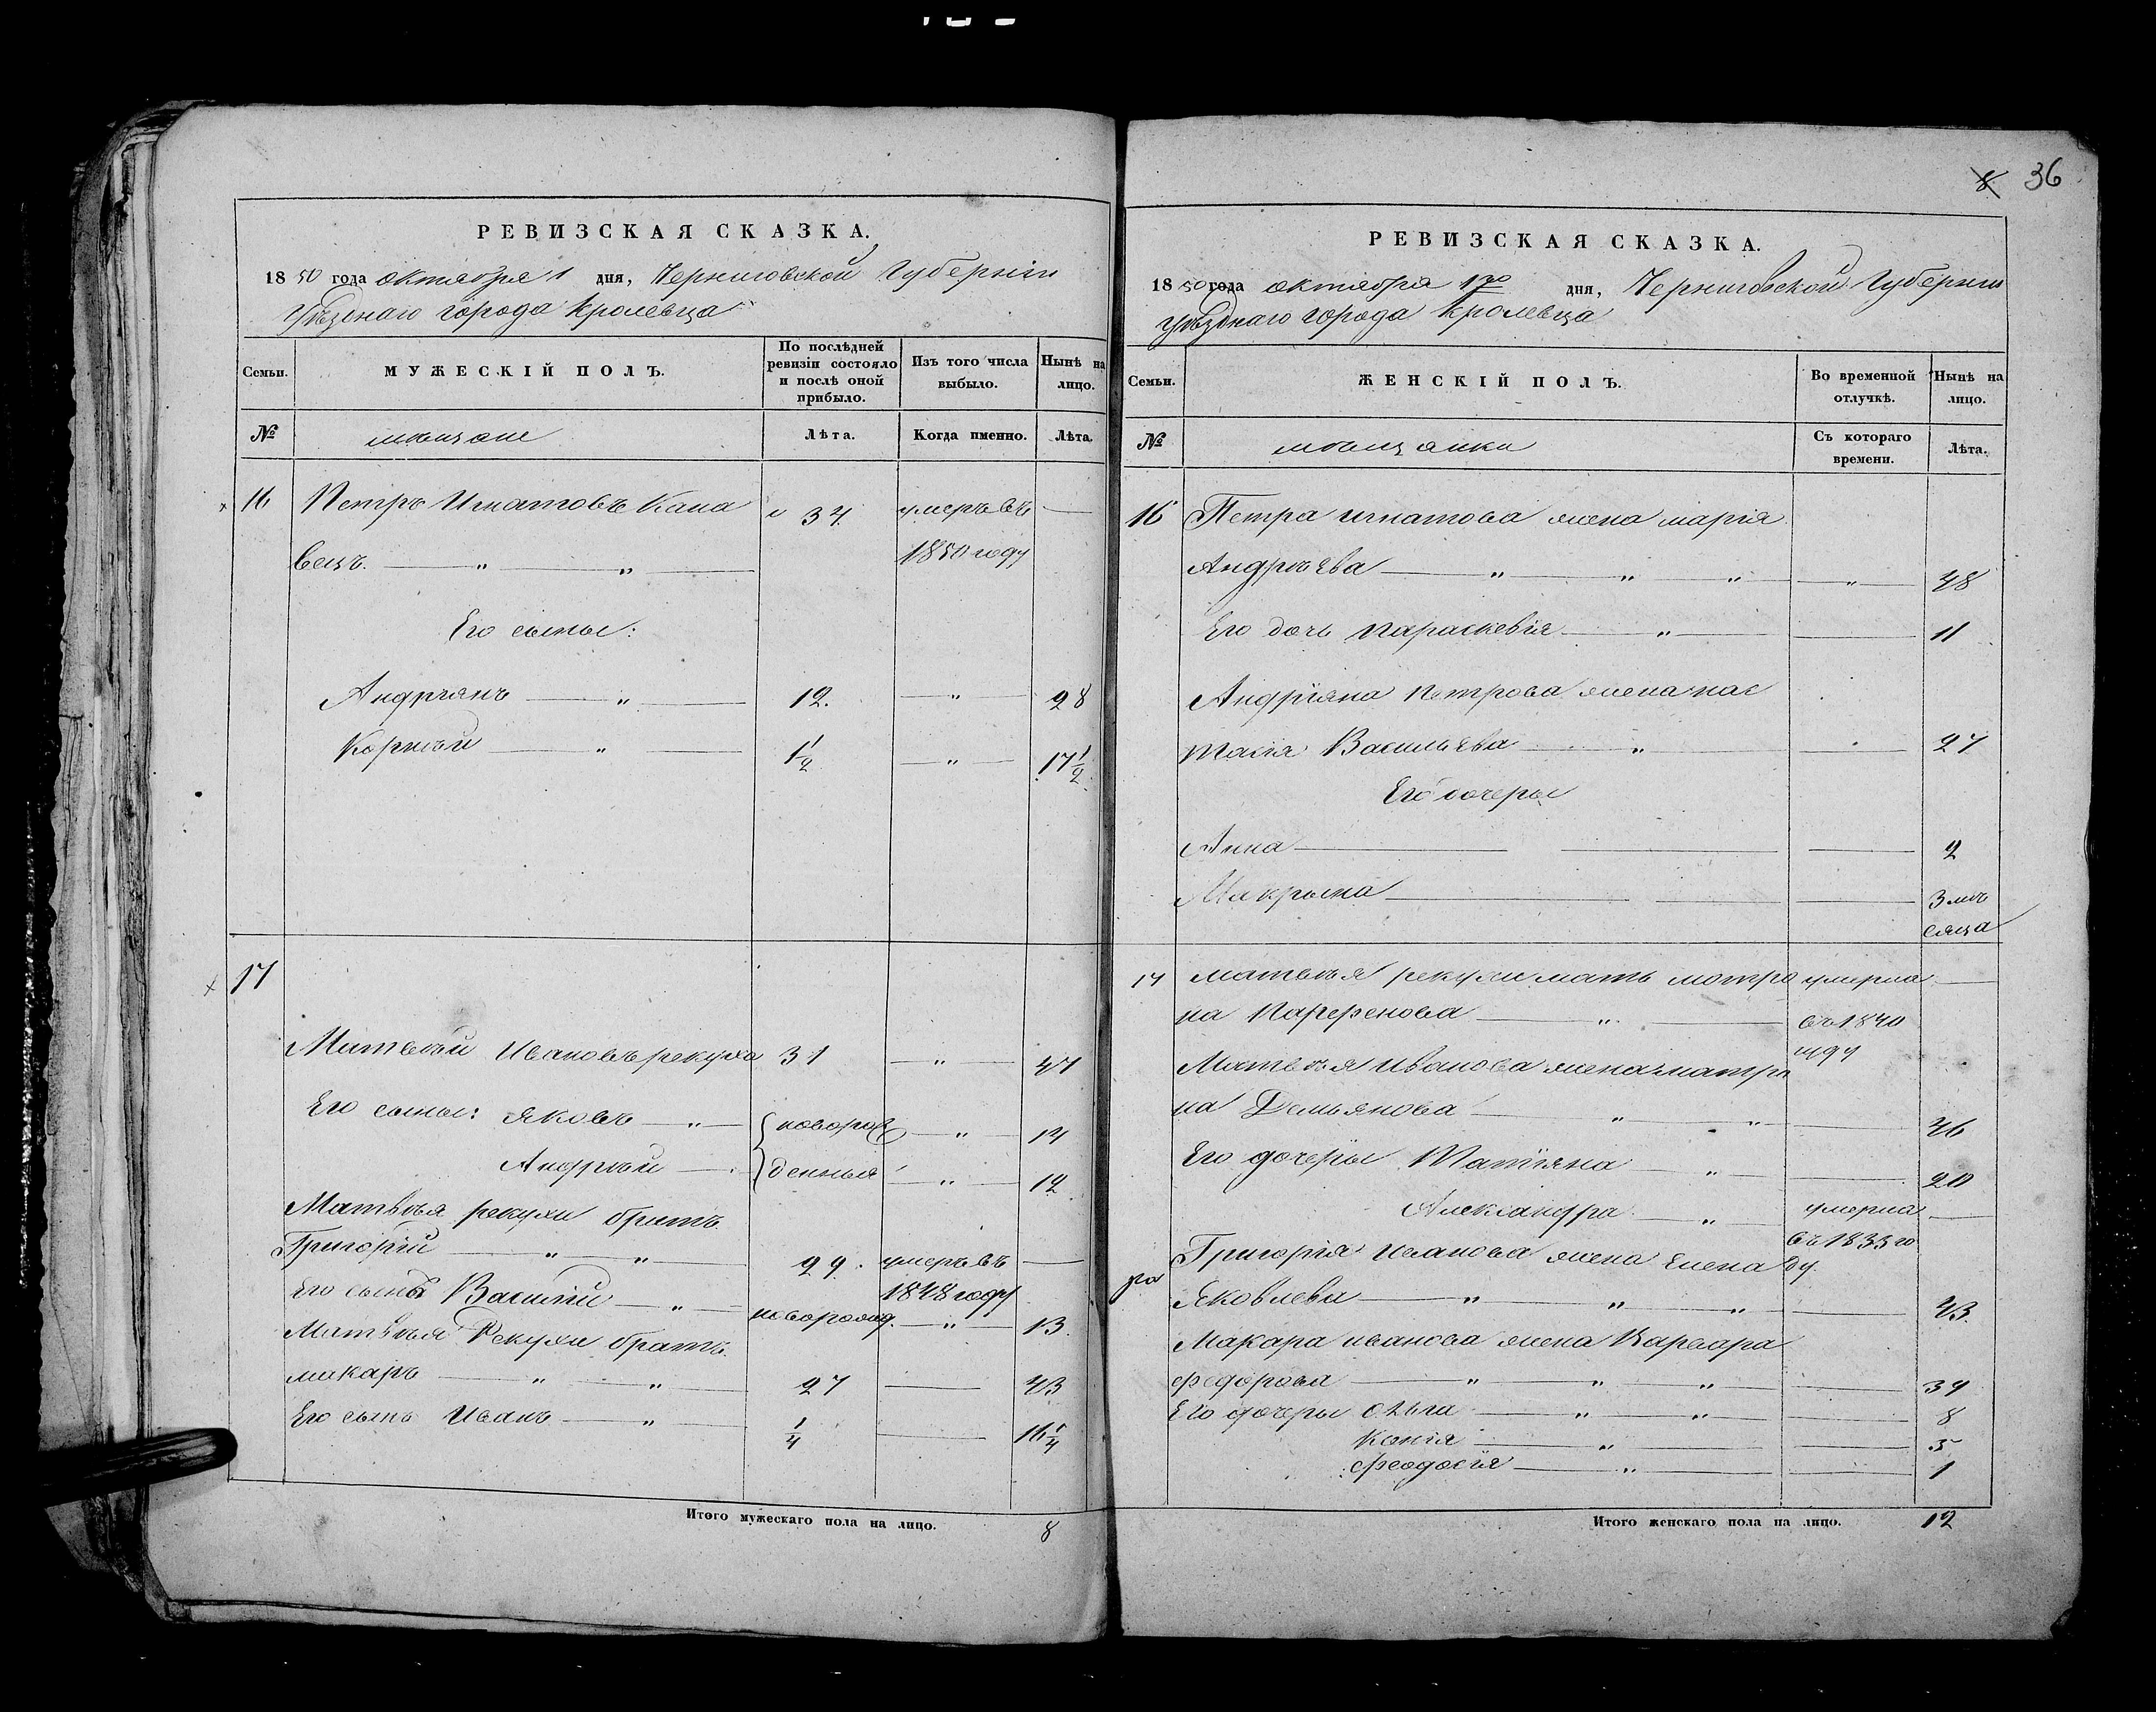 8 36
РЕВИЗСКАЯ СКАЗКА.
1850 года октября 1 дня, Черниговской Губерніи
уѣзднаго города Кролевца
Семьи. МУЖЕСКІЙ ПОЛЪ. По послѣдней ревизіи состояло и послѣ оной прибыло. Изъ того числа выбыло. Нынѣ на лицо.
№ мѣщане Лѣта. Когда именно. Лѣта.
16 Петръ Игнатовъ Кана 34 умеръ въ —
вецъ. — " — " — 1850 году
Его сыны:
Андріянъ — " — 12. — " — 28
Корнѣй — " — 1 1/2 — " — 17 1/2
17
Матвѣй Ивановъ рекуха 31 — " — 47
Его сыны: Яковъ — " — новорож — " — 14
Андрѣй — денныя — " — 12
Матвѣя рекухи братъ
Григорій — " — " — 29. умеръ въ —
Его сынъ Василій — " — новорожд. 1848 году — " — 13
Матвѣя Рекухи братъ
макаръ — " — " — 27 — 43
Его сынъ Иванъ — " — 1/4 — 16 1/4
Итого мужескаго пола на лицо. 8
РЕВИЗСКАЯ СКАЗКА.
1850 года октября 1го дня, Черниговской Губерніи
уѣзднаго города Кролевца
Семьи. ЖЕНСКІЙ ПОЛЪ. Во временной отлучкѣ. Нынѣ на лицо.
№ мѣщанки Съ котораго времени. Лѣта.
16 Петра игнатова жена марія
Андрѣева — " — " — " — " — 48
Его дочь параскевія — " — 11
Андріяна петрова жена нас
тасія Васильева — " — 27
Его дочеры
Анна — 2
Макрына — 3 мѣ
сяца
17 матвѣя рекухи мать мотро умерла —
на Парфенова — " — въ 1840
году
Матвѣя Иванова жена матро
на Демьянова — " — " — 46
Его дочеры Татіяна — " — 20
Александра — " — умерла —
Григорія иванова жена Елена въ 1833 го
ду
Яковлева — " — " — " — 43
Макара иванова жена Варвара
федорова — " — " — " — 39
Его дочеры Ольга — " — " — 8
Ксенія — " — 5
феодосія — " — 1
Итого женскаго пола на лицо. 12